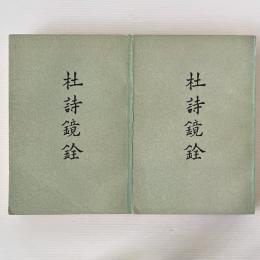 杜詩鏡銓
杜詩鏡銓